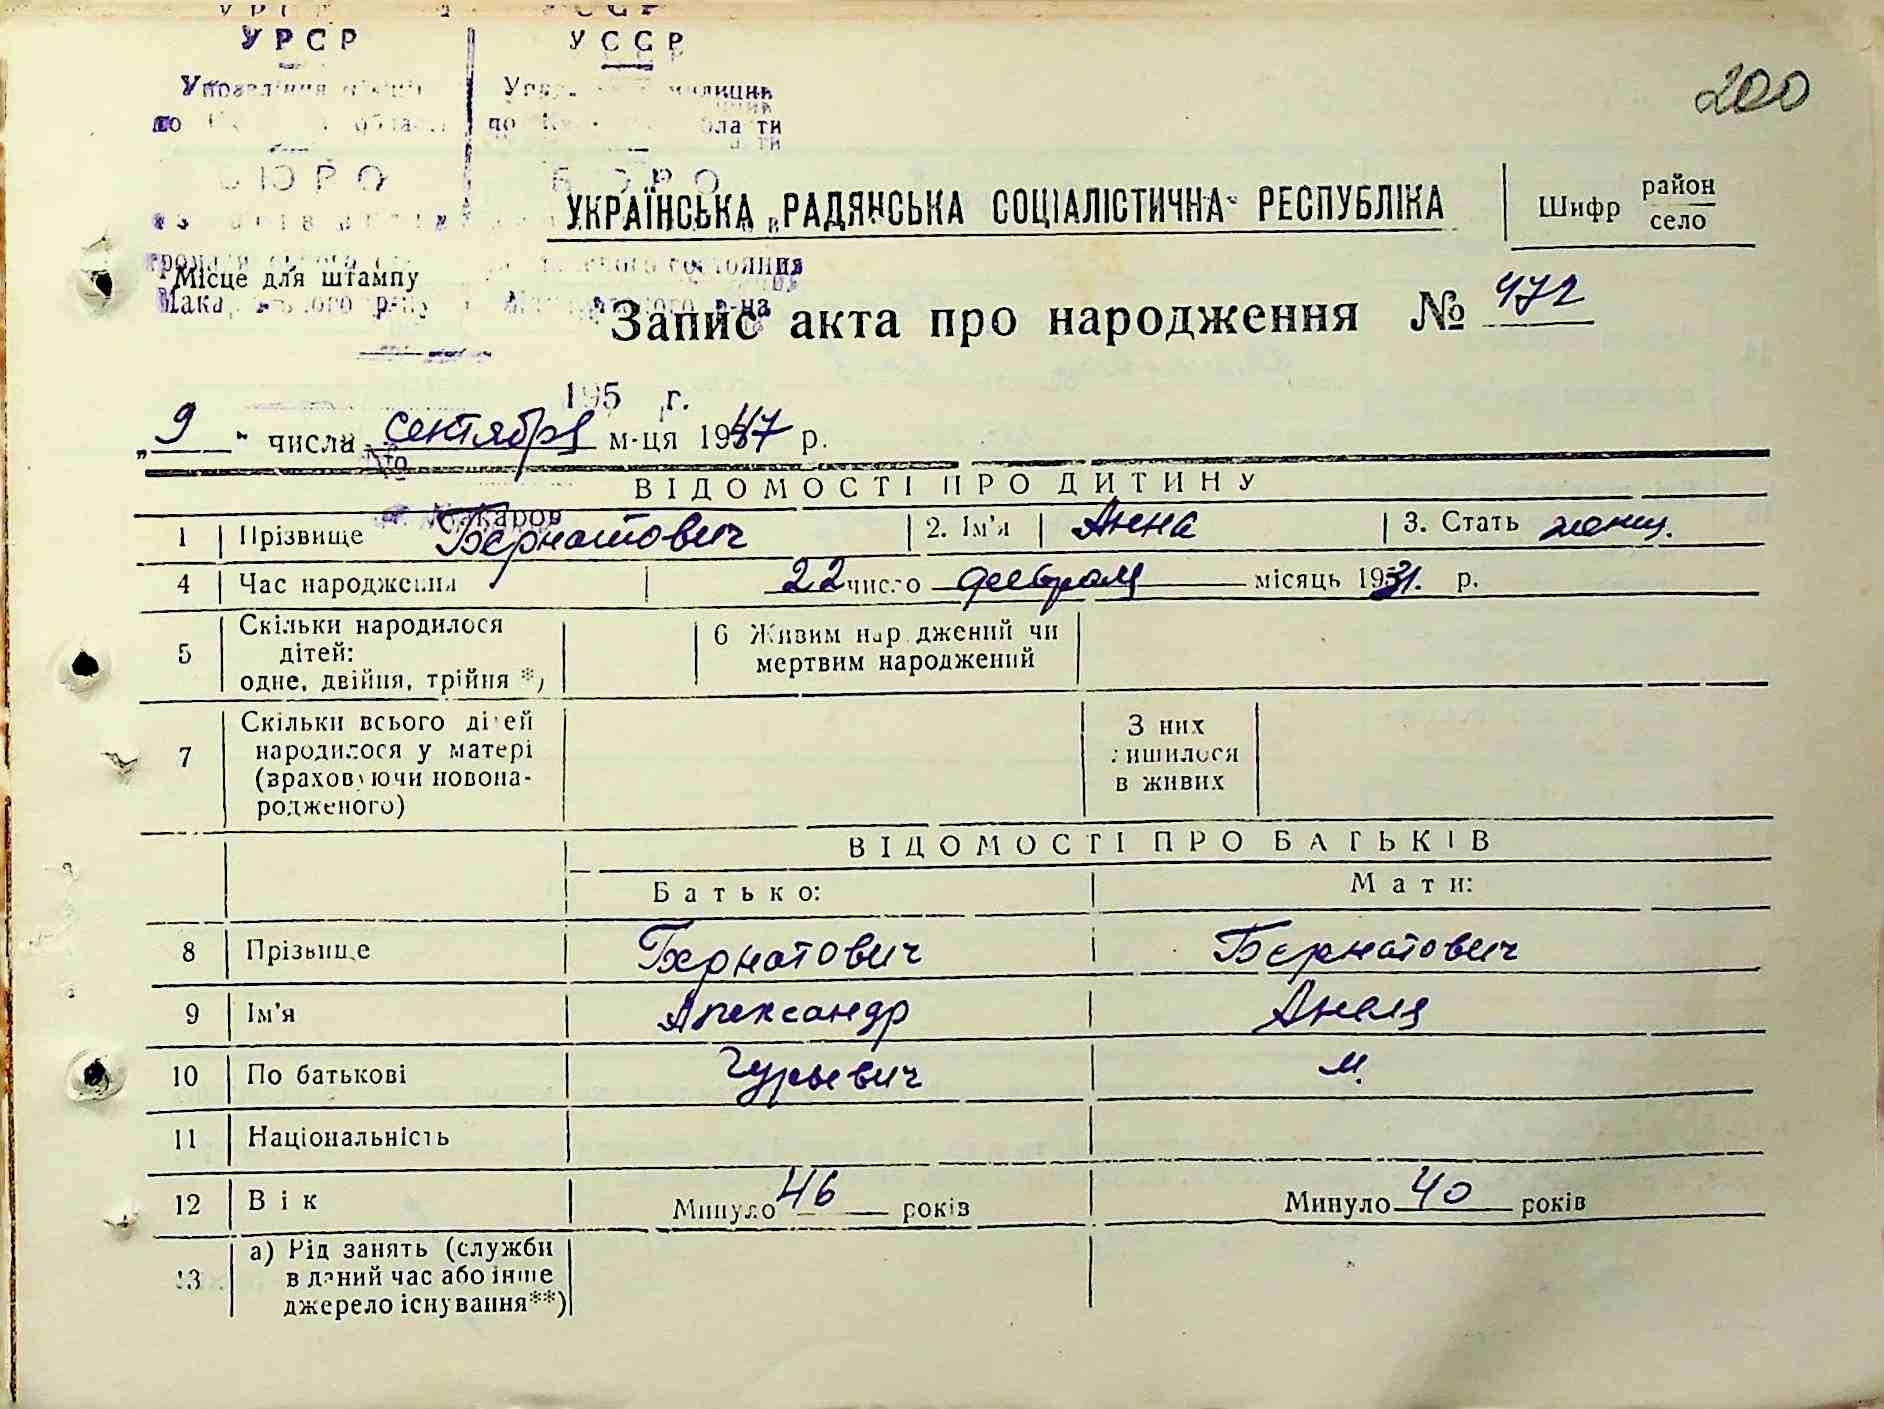 УРСР УССР
200
БЮРО
УКРАЇНСЬКА РАДЯНСЬКА СОЦІАЛІСТИЧНА РЕСПУБЛІКА
Шифр район
село
Місце для штампу
Запис акта про народження № 472
195 г.
„9" числа сентября м-ця 1947 р.
ВІДОМОСТІ ПРО ДИТИНУ
Макаров
1 Прізвище Бернатович 2. Ім'я Анна 3. Стать женщ.
4 Час народження 22 число февраля місяць 1931. р.
5 Скільки народилося
дітей:
одне, двійня, трійня *)
6 Живим народжений чи
мертвим народжений
7 Скільки всього дітей
народилося у матері
(враховуючи новона-
родженого)
З них
лишилося
в живих
ВІДОМОСТІ ПРО БАТЬКІВ
Батько: Мати:
8 Прізвище Бернатович Бернатович
9 Ім'я Александр Анеля
10 По батькові Гурьевич М.
11 Національність
12 Вік Минуло 46 років Минуло 40 років
13 а) Рід занять (служби
в даний час або інше
джерело існування**)